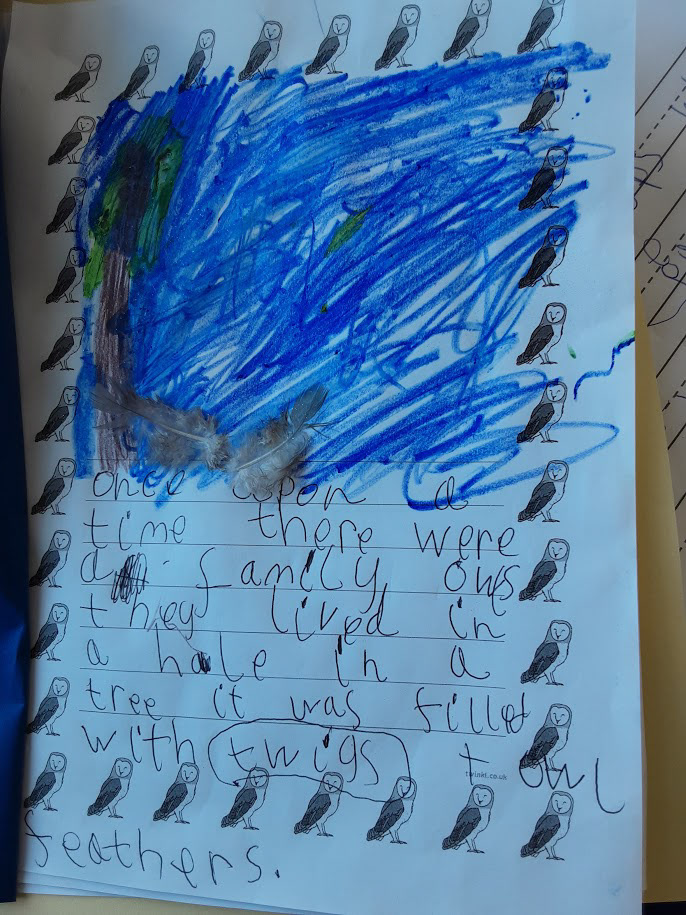 once upon a
time there were
a family ows
they lived in
a hole in a
tree it was filled
with twigs + owl
twinkl.co.uk
feathers.